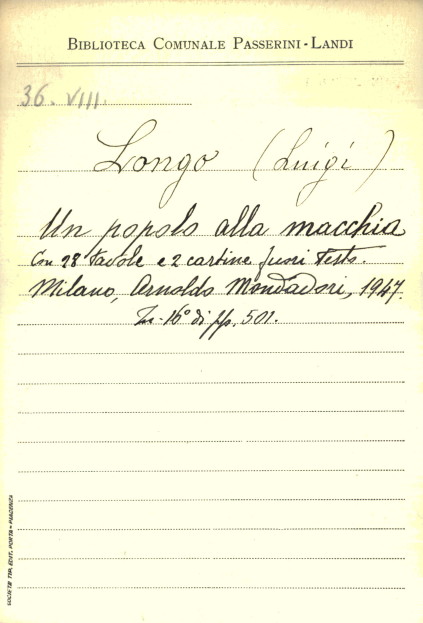 BIBLIOTECA COMUNALE PASSERINI-LANDI
36. VIII.
Longo (Luigi)
Un popolo alla macchia
Con 28 tavole e 2 cartine fuori testo.
Milano, Arnoldo Mondadori, 1947.
In-16° di pp. 501.
SOCIETÀ TIP. EDIT. PORTA - PIACENZA